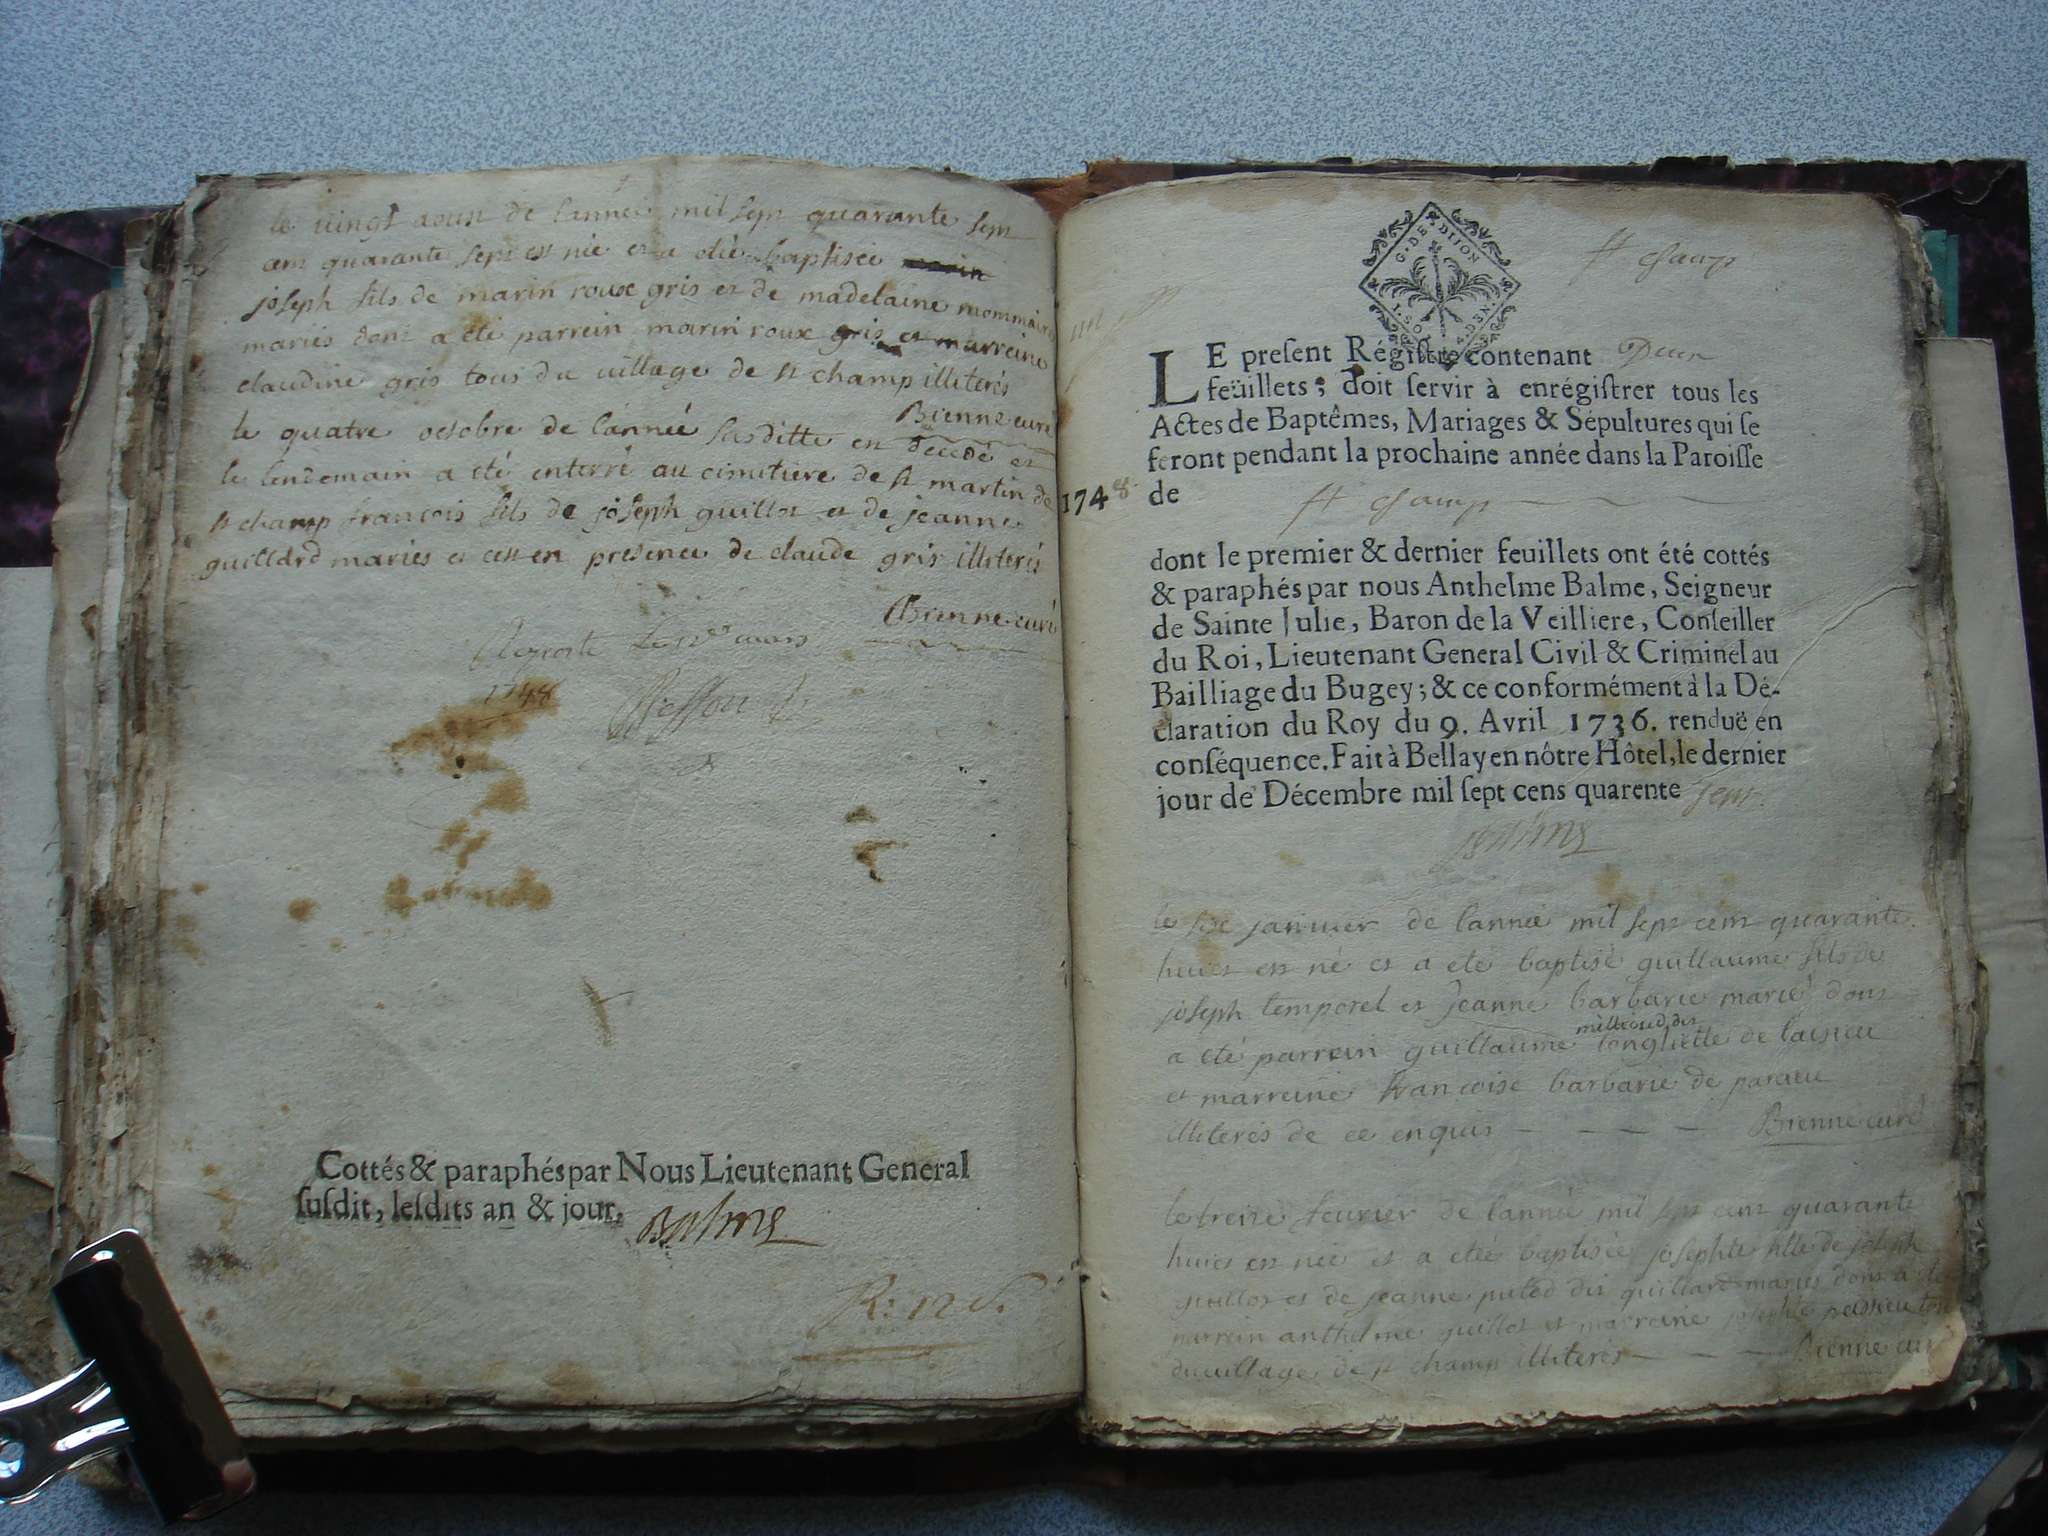 le vingt aoust de lannée mil sept quarante sept
cent quarante sept est née et a été baptisée
joseph fils de marin roux gris et de madelaine mommain
mariés dont a été parrein marin roux gris et marreine
claudine gris tous du village de st champ illiterés
Brenne curé
le quatre octobre de lannée susditte en decedé et
le lendemain a été enterré au cimitiere de st martin de
st champ françois fils de joseph guillot et de jeanne
guillard mariés et cest en presence de claude gris illiterés
Brenne curé
mars
1748
Cottés & paraphés par Nous Lieutenant General
ſuſdit, leſdits an & jour,
Balme
R: 12 s.
G. DE DIJON
st champ
LE preſent Régiſtre contenant Deux
feüillets; doit ſervir à enrégiſtrer tous les
Actes de Baptêmes, Mariages & Sépultures qui ſe
feront pendant la prochaine année dans la Paroiſſe
1748
de st champ
dont le premier & dernier feuillets ont été cottés
& paraphés par nous Anthelme Balme, Seigneur
de Sainte Julie, Baron de la Veilliere, Conſeiller
du Roi, Lieutenant General Civil & Criminel au
Bailliage du Bugey; & ce conformément à la Dé-
claration du Roy du 9. Avril 1736. renduë en
conſéquence. Fait à Bellay en nôtre Hôtel, le dernier
jour de Décembre mil ſept cens quarente sept.
Balme
le six janvier de lannée mil sept cent quarante
huict est né et a eté baptisé guillaume fils de
joseph temporel et jeanne barbarie marié dont
a eté parrein guillaume millioud dit longuette de laisieu
et marreine francoise barbarie de parcieu
illiterés de ce enquis Brenne curé
le treize feuvrier de lannée mil sept cent quarante
huict est née et a eté baptisée josephte fille de joseph
guillot et de jeanne puted dit guillard mariés dont a été
parrein anthelme guillot et marreine josephte peissieu tous
du village de st champ illiterés Brenne curé